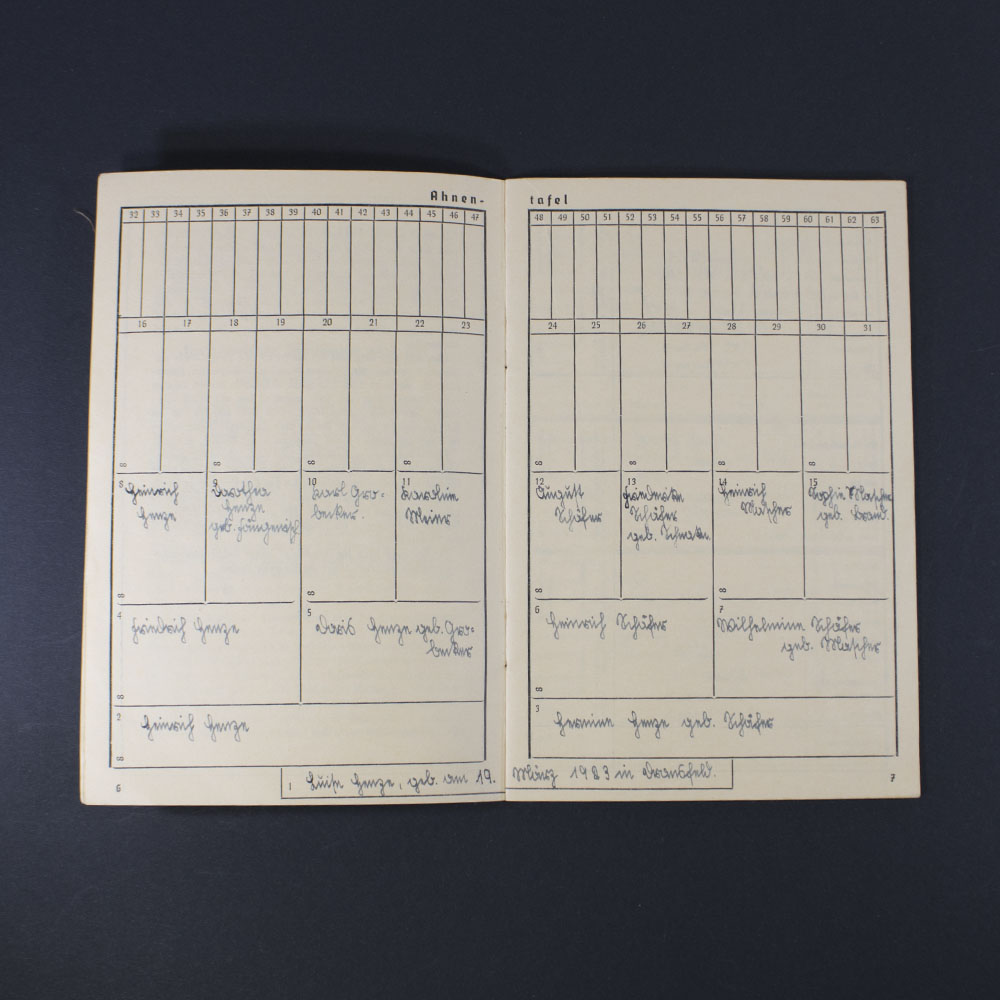 Ahnen-
tafel
32 33 34 35 36 37 38 39 40 41 42 43 44 45 46 47
48 49 50 51 52 53 54 55 56 57 58 59 60 61 62 63
16 17 18 19 20 21 22 23
24 25 26 27 28 29 30 31
8 Heinrich
Henze
9 Dorothea
Henze
geb.
10 Karl Gro-
becker.
11 Karoline
Meier
12 August
Schäfer
13 Friederike
Schäfer
geb.
14 Heinrich
Mascher
15 Sophie Mascher
geb. Brand.
4 Friedrich Henze
5 Doris Henze geb. Gro-
becker
6 Heinrich Schäfer
7 Wilhelmine Schäfer
geb. Mascher
2 Heinrich Henze
3 Hermine Henze geb. Schäfer
1 Luise Henze, geb. am 19. März 1923 in Dransfeld.
6
7